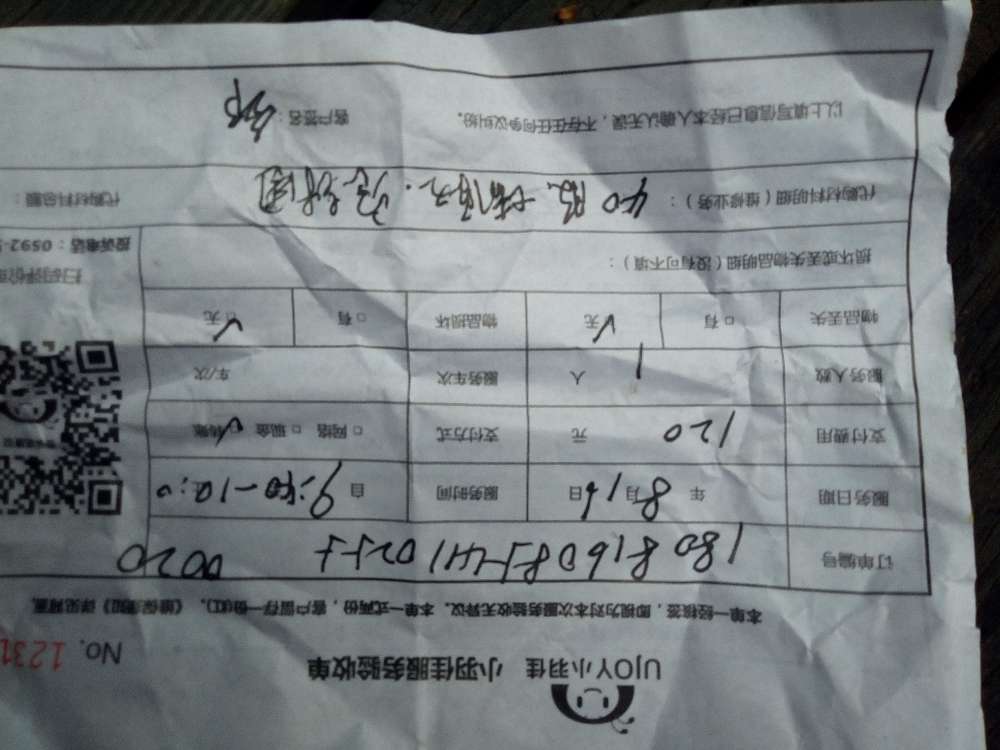 UJOY小羽佳 小羽佳服务验收单
No. 1231
本单一经核签，即视为对本次服务验收无异议。本单一式两份，客户留存一份(红)，《维保须知》详见背面。
订单编号 0020
服务日期 年 8月16日 服务时间 自 9:40-10:0
支付费用 120 元 支付方式 □网络 □现金 ✓转账
服务人数 1 人 服务车次 车/次
物品丢失 □有 ✓无 物品损坏 □有 ✓无
损坏或丢失物品明细（没有可不填）：
扫码评价
投诉电话：0592-5
代购材料明细（维修业务）： 40
代购材料总额：
以上填写信息已经本人确认无误，不存在任何争议纠纷。 客户签名：